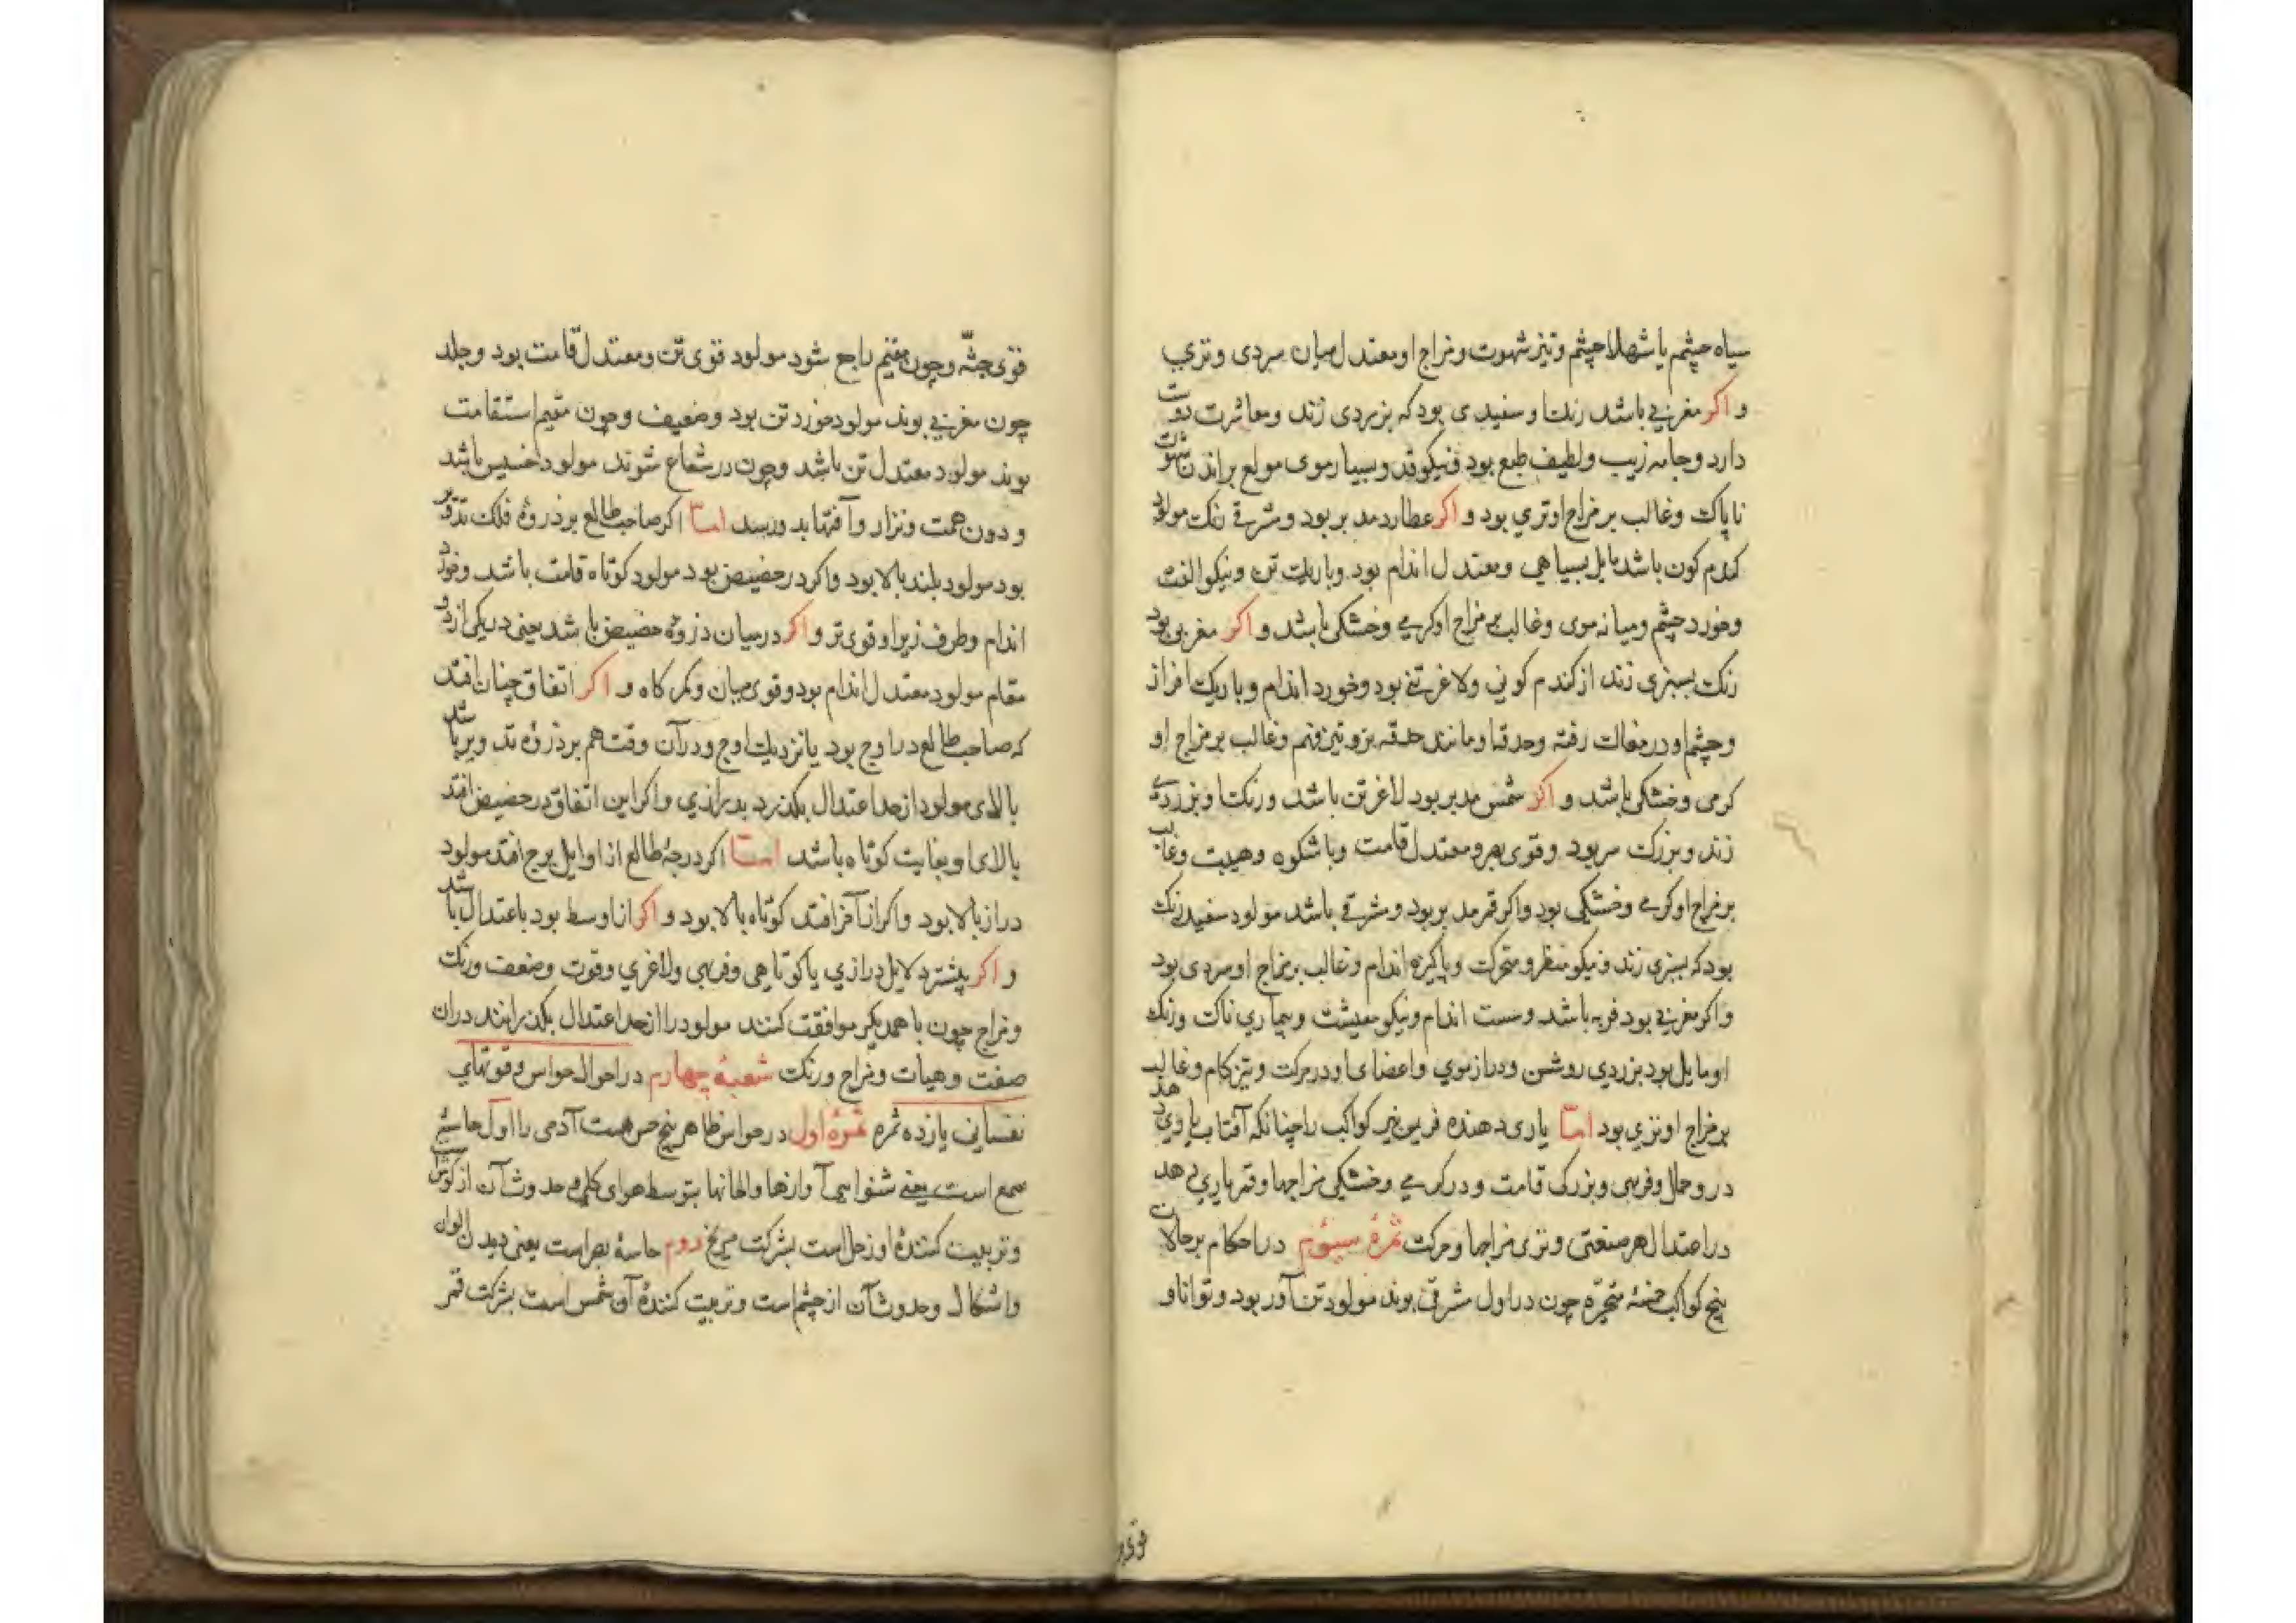 سیاه چشم یا شهلا چشم و تیز شهوت و مزاج او معتدل میان سردی و تری
و اکر مغربی باشد رنک او سفیدی بود که بزردی زند و معاشرت دوست
دارد و جامه زیب و لطیف طبع بود و نیکو قد و بسیار موی مولع براندن شهوت
ناپاک و غالب بر مزاج او تری بود و اکر عطارد مدبر بود و مشرقی رنک مولود
کندم کون باشد مایل بسیاهی و معتدل اندام بود و باریک تن و نیکو الفت
و خورد چشم و میانه موی و غالب بر مزاج او کرمی و خشکی باشد و اکر مغربی بود
رنک بسبزی زند از کندم کونی و لاغر تن بود و خورد اندام و باریک افراز
و چشم او در مغاک رفته و حدقه او مانند حدقه بز و تیز فهم و غالب بر مزاج او
کرمی و خشکی باشد و اکر شمس مدبر بود لاغر تن باشد و رنک او بزردی
زند و بزرک سر بود و قوی بهر و معتدل قامت و با شکوه و هیبت و غالب
بر مزاج او کرمی و خشکی بود و اکر قمر مدبر بود و مشرقی باشد مولود سفید رنک
بود که بسبزی زند و نیکو منظر و متحرک و پاکیزه اندام و غالب بر مزاج او سردی بود
و اکر مغربی بود فربه باشد و سست اندام و نیکو معیشت و بیماری ناک و رنک
او مایل بود بزردی روشن و دراز موی و اعضای او در حرکت و تیز کام و غالب
بر مزاج او تری بود اما یاری دهنده قرین نیر کواکب را چنانکه آفتاب یاوری دهد
در و جمال و فربهی و بزرکی قامت و در کرمی و خشکی مزاجها و قمر یاری دهد
در اعتدال هر صنعتی و تری مزاجها و حرکت ثمرهٔ سیوم در احکام بر حالات
پنج کواکب خمسهٔ متحیره چون در اول مشرقی بوند مولود تن آور بود و توانا و
قوی
قوی جثه و چون مقیم راجع شود مولود قوی تن و معتدل قامت بود و جلد
چون مغربی بوند مولود خورد تن بود و ضعیف و چون مقیم استقامت
بوند مولود معتدل تن باشد و چون در شعاع شوند مولود خسیس باشد
و دون همت و نزار و آفتها بدو رسد اما اکر صاحب طالع بر ذروهٔ فلک تدویر
بود مولود بلند بالا بود و اکر در حضیض بود مولود کوتاه قامت باشد و خورد
اندام و طرف زیر او قوی تر و اکر در میان ذروه حضیض باشد یعنی در یکی از دو
مقام مولود معتدل اندام بود و قوی میان و کمرکاه و اکر اتفاق چنان افتد
که صاحب طالع در اوج بود یا نزدیک اوج و در آن وقت هم بر ذروهٔ تدویر باشد
بالای مولود از حد اعتدال بکذرد بدرازی و اکر این اتفاق در حضیض افتد
بالای او بغایت کوتاه باشد اما اکر درجهٔ طالع از اوایل برج افتد مولود
دراز بالا بود و اکر از آخر افتد کوتاه بالا بود و اکر از اوسط بود باعتدال باشد
و اکر بیشتر دلایل درازی یا کوتاهی و فربهی و لاغری و قوت و ضعف و رنک
و مزاج چون با همدیکر موافقت کنند مولود را از حد اعتدال بکذرانند در آن
صفت و هیات و مزاج و رنک شعبهٔ چهارم در احوال حواس و قوتهای
نفسانی یازده ثمره ثمرهٔ اول در حواس ظاهر پنج حس هست آدمی را اول حاسهٔ
سمع است یعنی شنوایی آوازها و الحانها بتوسط هوای کلی و حدوث آن از کوش است
و تربیت کنندهٔ او زحل است بشرکت مریخ دوم حاسهٔ بصر است یعنی دیدن الوان
و اشکال و حدوث آن از چشم است و تربیت کنندهٔ آن شمس است بشرکت قمر